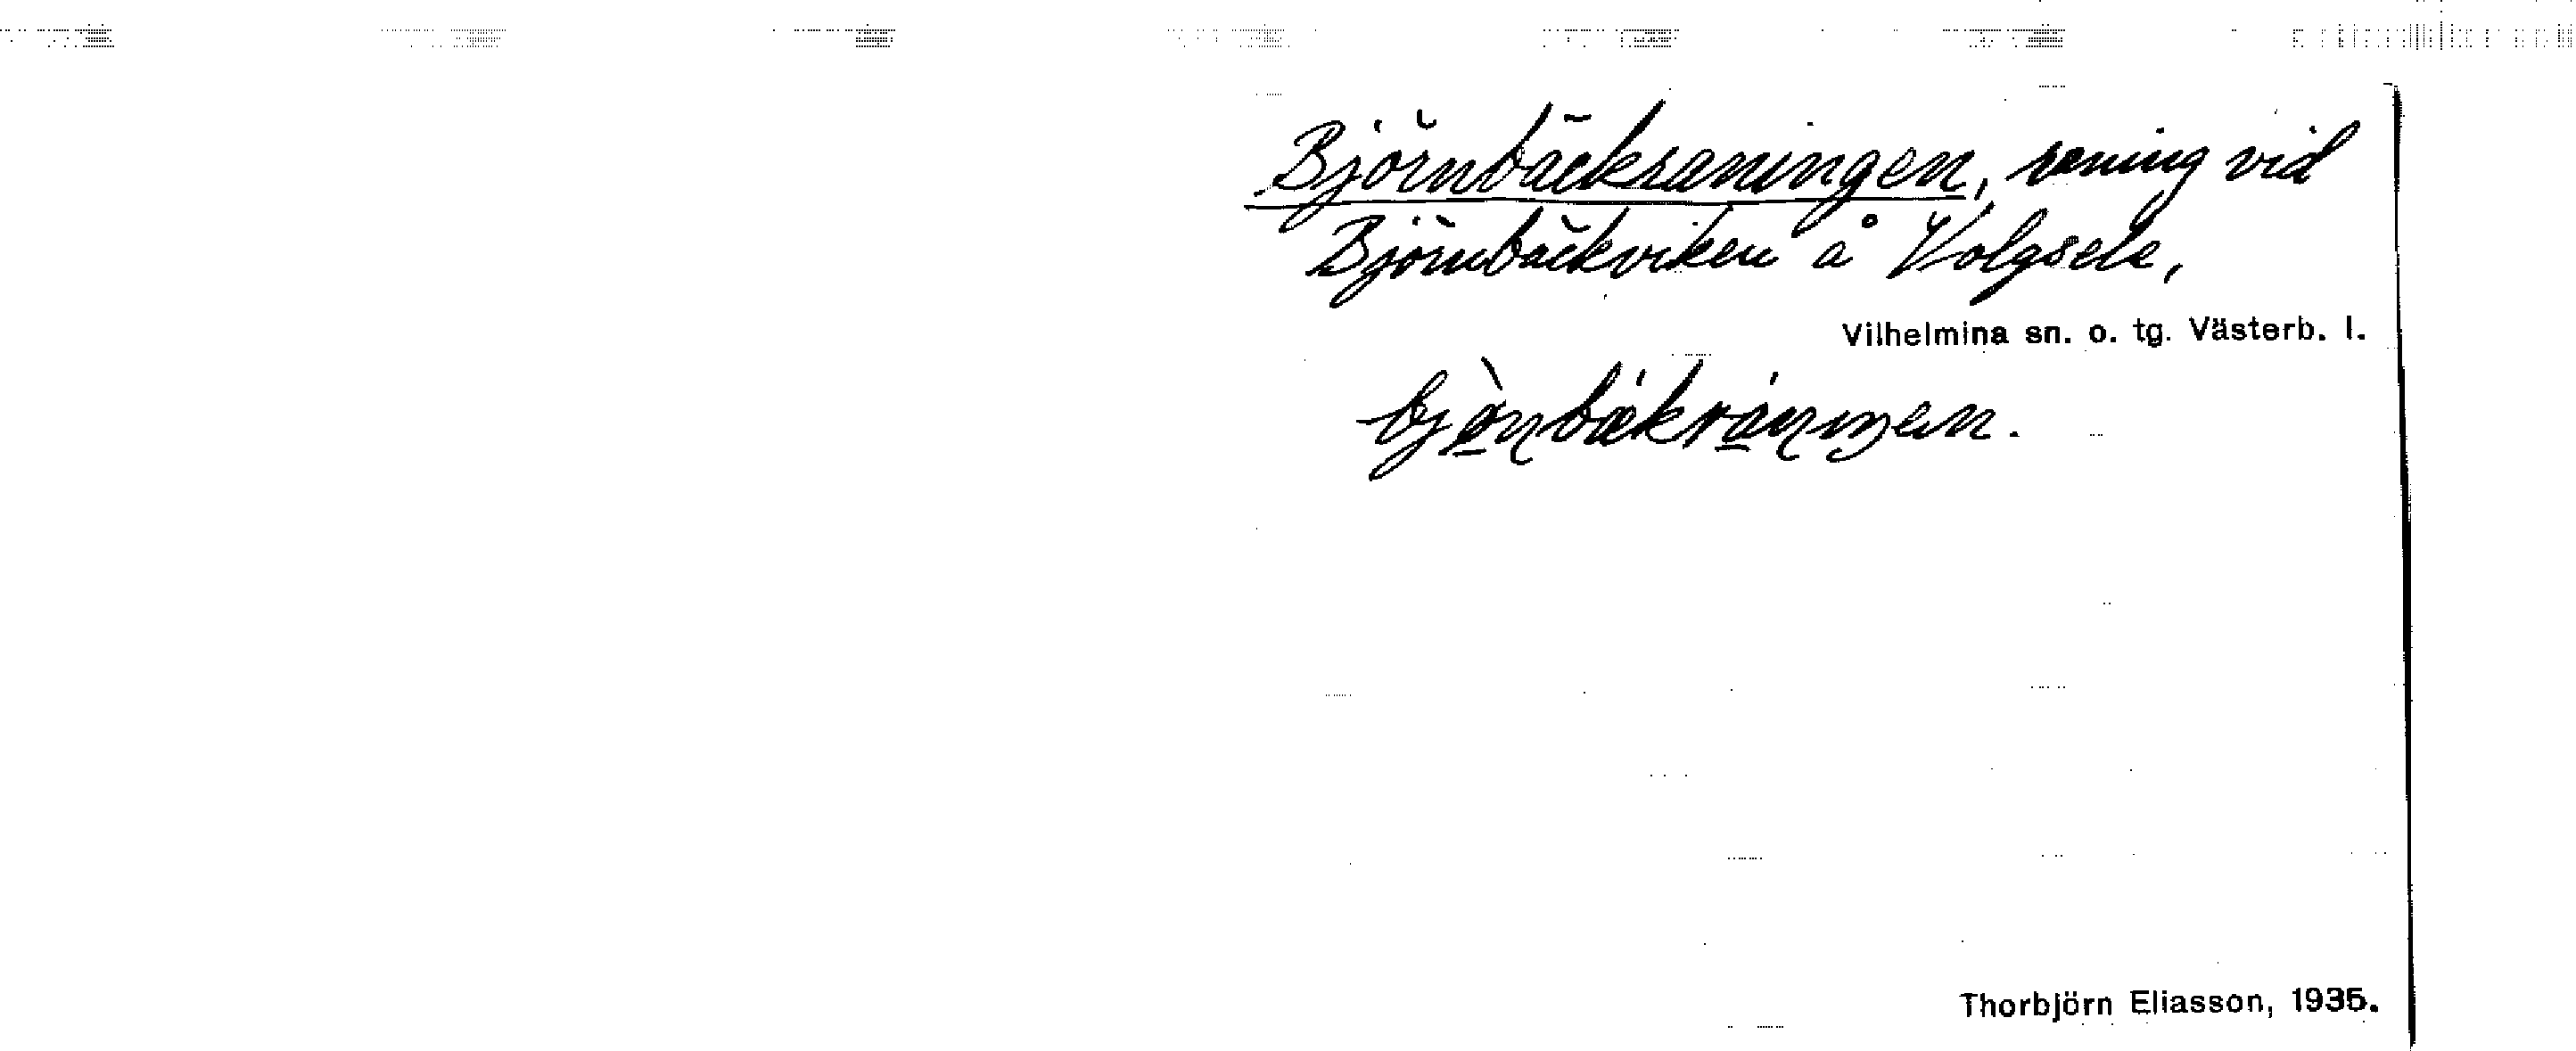 Björnbäckraningen, raning vid
Björnbäckviken å Volgsele,
Vilhelmina sn. o. tg. Västerb. l.
Thorbjörn Eliasson, 1935.